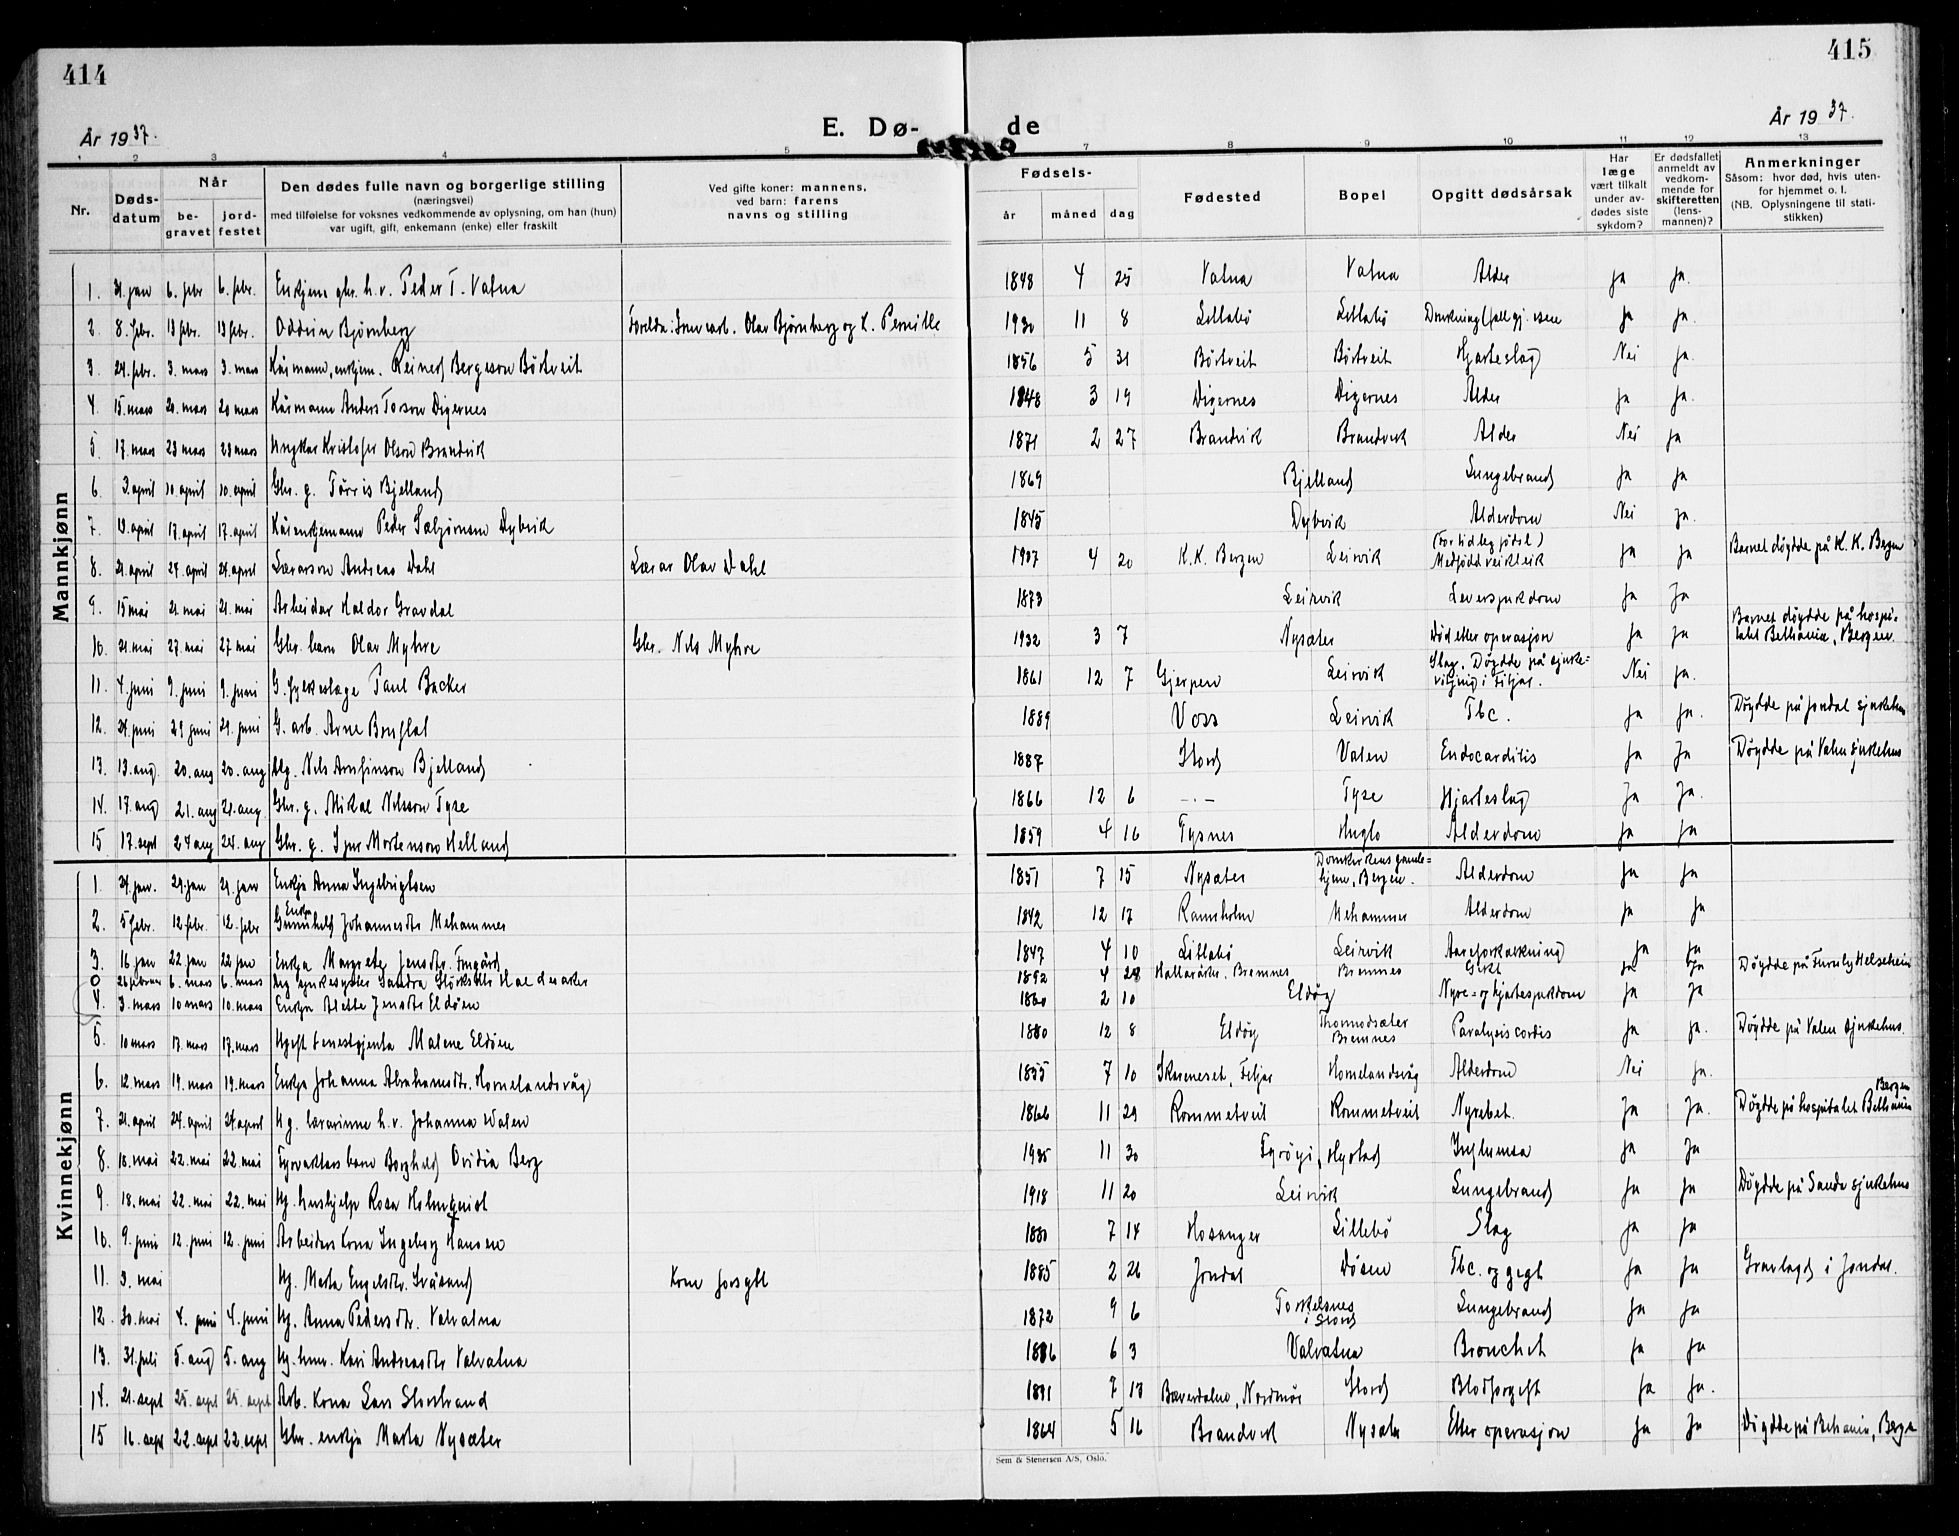 414
415
År 1937.
E. Dø-
de
År 1937.
1 2 3 4 5 7 8 9 10 11 12 13
Nr.
Døds-
datum
Når
be-
gravet
jord-
festet
Den dødes fulle navn og borgerlige stilling
(næringsvei)
med tilføielse for voksnes vedkommende av oplysning, om han (hun)
var ugift, gift, enkemann (enke) eller fraskilt
Ved gifte koner: mannens,
ved barn: farens
navns og stilling
Fødsels-
år måned dag
Fødested
Bopel
Opgitt dødsårsak
Har
læge
vært tilkalt
under av-
dødes siste
sykdom?
Er dødsfallet
anmeldt av
vedkom-
mende for
skifteretten
(lens-
mannen)?
Anmerkninger
Såsom: hvor død, hvis uten-
for hjemmet o. l.
(NB. Oplysningene til stati-
stikken)
Mannkjønn
1. 31. jan 6. febr 6. febr. Enkjem. gbr. h.v. Peder T. Vatna 1848 4 25 Vatna Vatna Alder Ja Ja.
2. 8. febr. 13 febr. 13 febr. Oddvin Bjørnberg Foreldr: Gruvearb. Olav Bjørnberg og k. Pernille 1930 11 8 Litlabø Litlabø Drukning (fall gj. isen Ja Ja.
3. 24. febr. 3. mars 3. mars Kårmann, enkjem. Reinert Bergeson Børtveit 1856 5 31 Børtveit Børtveit Hjarteslag Nei Ja.
4. 15. mars 20. mars 20 mars Kårmann Anders Torson Digernes 1848 3 19 Digernes Digernes Alder Ja Ja.
5. 17. mars 23 mars 23 mars Ungkar Kristofer Olson Brandvik 1871 2 27 Brandvik Brandvik Alder Nei Ja
6. 3. april 10. april 10. april Gbr. g. Tørris Bjelland 1869 Bjelland Lungebrand Ja Ja
7. 13. april 17. april 17. april Kårenkjemann Peder Salbjørnsen Dybvik 1845 Dybvik Alderdom Nei Ja.
8. 21. april 24. april 24. april Lærarson Andreas Dahl Lærar Olav Dahl 1937 4 20 K.K. Bergen Leirvik (For tidleg fødsl) Medfødd veikleik Ja Ja Barnet døydde på K. K. Bergen
9. 15 mai 21. mai 21. mai Arbeidar Haldor Gravdal 1873 Leirvik Leversjukdom Ja Ja
10. 21. mai 27. mai 27 mai Gbr. barn Olav Myhre Gbr. Nils Myhre 1932 3 7 Nysæter Død etter operasjon Ja Ja Barnet døydde på hospi-
talet Bethania, Bergen.
11. 4. juni 9. juni 9. juni G. fylkeslege Paul Backer 1861 12 7 Gjerpen Leirvik Slag. Døydde på sjuke-
vitjing i Fitjar. Nei Ja.
12. 24. juni 29 juni 29. juni G. arb. Arne 1889 Voss Leirvik Tbc. Ja Ja. Døydde på Jondal sjukehus
13. 13. aug 20. aug 20. aug Ug. Nils Arnfinson Bjelland 1887 Stord Valen Endocarditis Ja Ja Døydde på Valen sjukehus
14. 17. aug 21. aug 21. aug Gbr. g. Mikal Nilsson Tyse 1866 12 6 -.- Tyse Hjarteslag Ja Ja.
15 17. sept 24 aug 24. aug Gbr. g. Ivar Mortenson Helland 1859 4 16 Tysnes Huglo Alderdom Ja Ja
Kvinnekjønn
1. 24. jan. 29. jan 29. jan Enkja Anna Ingebrigtsen 1851 7 15 Nysæter Domkirkens gamle-
hjem, Bergen. Alderdom Ja Ja
2. 5 febr. 12 febr. 12. febr Enkja Gunnhild Johannesdtr Mehammer 1842 12 17 Ramsholm Mehammer Alderdom Ja Ja
3. 16 jan 22 jan 22 jan Enkja Margreta Jensdtr. 1847 4 10 Litlabø Leirvik Aareforkalkning Ja Ja
0 26 februar 6. mars 6. mars Ug sjukesyster Sandra 1892 4 28 Bremnes Bremnes Ja Ja Døydde på Furuly Helseheim
4. 3. mars 10 mars 10. mars Enkja Mette Jensdtr Eldøen 1860 2 10 Eldøy Nyre- og hjartesjukdom Ja Ja
5. 10 mars 17. mars 17. mars Ugift tenestgjenta Malene Eldøen 1880 12 8 Eldøy Thormodsæter
Bremnes Paralysis cordis Ja Ja. Døydde på Valen sjukehus.
6. 12. mars 19. mars 19. mars Enkja Johanna Abrahamsdtr. Hornelandsvåg 1855 7 10 Fitjar Hornelandsvåg Alderdom Nei Ja.
7. 21. april 24. april 24 april Ug. lærarinne h.v. Johanna Valen 1866 11 29 Rommetveit Rommetveit Nyrebet. Ja Ja. Døydde på hospitalet Bethania
Bergen
8. 18. mai 22. mai 22. mai Fyrvaktars barn Borghild Ovidia Berg 1935 11 30 Fyrøyi, Hystad Influensa Ja Ja
9. 18. mai 22. mai 22. mai Ug. hushjelp Rosa Holmquist 1918 11 20 Leirvik Lungebrand Ja Ja Døydde på Sauda sjukehus
10. 9. juni 12. juni 12. juni Arbeiders kona Ingeborg Hansen 1880 7 14 Hosanger Lillebø Slag Ja Ja
11. 3. mai Ug. Marta Engelsdtr. Svåsand Kone forsytt 1885 2 26 Jondal Døsen Tbc. og gigt Ja Ja Gravlagd i Jondal.
12. 30. mai 4. juni 4. juni Ug. Anna Pedersdtr. Valvatna 1872 9 6 Torkelsnes
i Stord Lungebrand Ja Ja
13. 31. juli 5. aug 5. aug Ug. Kari Andreasdtr Valvatna 1886 6 3 Valvatna Bronchit Ja Ja
14. 21. sept 25. sept 25. sept Arb. kona Storstrand 1891 7 13 Bæverdalen, Nordmør Stord Blodforgift Ja Ja.
15 16. sept 22. sept 22. sept Gbr. enkja Marta Nysæter 1864 5 16 Brandvik Nysæter Etter operasjon Ja Ja Døydde på Betania, Berge
Sem & Stenersen A/S, Oslo.